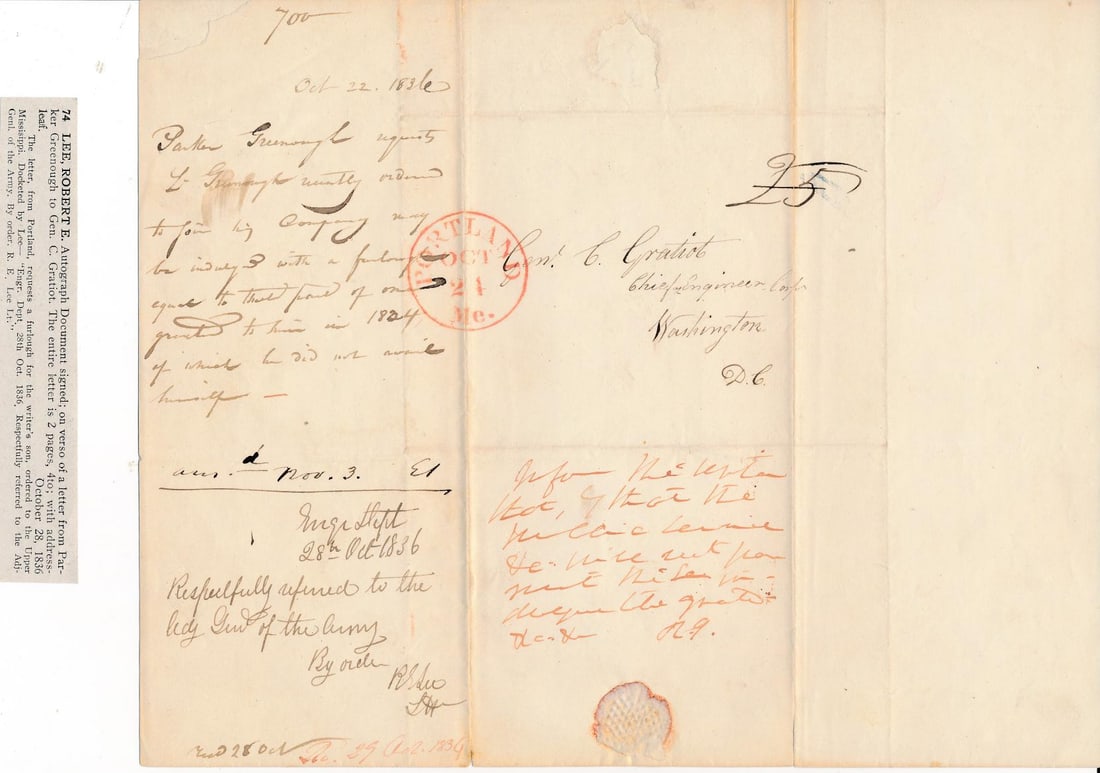 74 LEE, ROBERT E. Autograph Document signed; on verso of a letter from Par-
ker Greenough to Gen. C. Gratiot. The entire letter is 2 pages, 4to; with address-
leaf. October 28, 1836
The letter, from Portland, requests a furlough for the writer's son, ordered to the Upper
Missisippi. Docketed by Lee— "Engr. Dept. 28th Oct. 1836. Respectfully referred to the Adj-
Genl. of the Army. By order. R. E. Lee Lt."
700
Oct 22. 1836
Parker Greenough requests
Lt Greenough recently ordered
to join his Company may
be indulged with a furlough
equal to that part of one
granted to him in 1834
of which he did not avail
himself —
ans.d Nov. 3.
Engr Dept
28th Oct 1836
Respectfully referred to the
Adj Genl of the Army
By order
R E Lee
Lt
recd 28 Oct
29 Oct. 1836
PORTLAND
OCT
24
Me.
25
Genl. C. Gratiot
Chief Engineer Corps
Washington
D.C.
that the
&c
the
&c